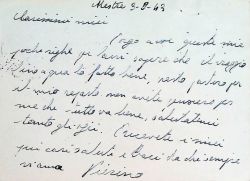 Mestre 3-8-43
Carissimi miei
Porgo a voi queste mie
poche righe per farvi sapere che il viaggio
fino a qua lo fatto bene, resto per
il mio reparto non avete pensiero per
me che tutto va bene, salutatemi
tanto gli zii. Ricevete i miei
più cari saluti e baci da chi sempre
vi ama